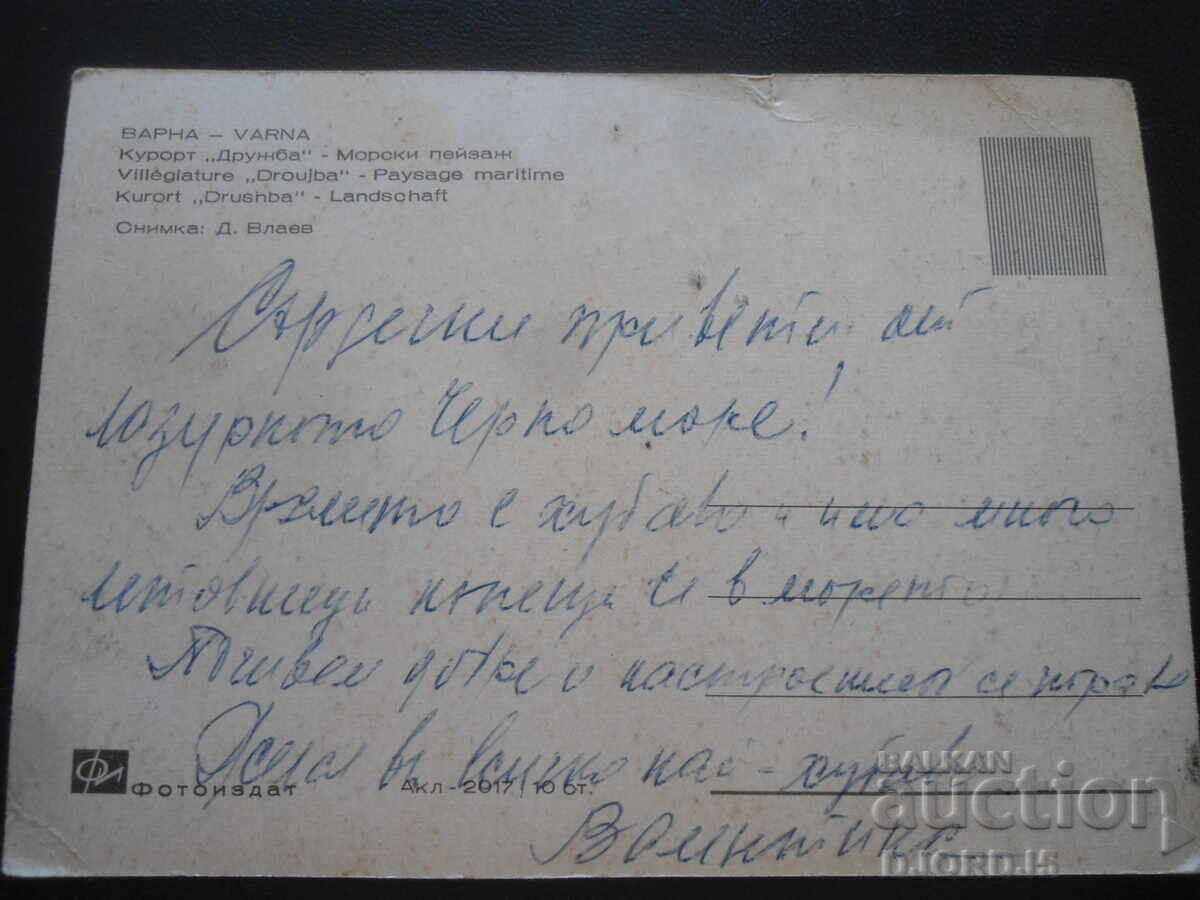 ВАРНА – VARNA
Курорт „Дружба" - Морски пейзаж
Villégiature „Droujba" - Paysage maritime
Kurort „Drushba" - Landschaft
Снимка: Д. Влаев
Сърдечни привети от
лазурното Черно море!
Времето е хубаво и има много
летовници в морето.
Почивам добре и настроението се
Желая Ви всичко най-хубаво
Валентина
ФИ Фотоиздат
Акл-2017 10 ст.
BALKAN
auction
DJORDJ5